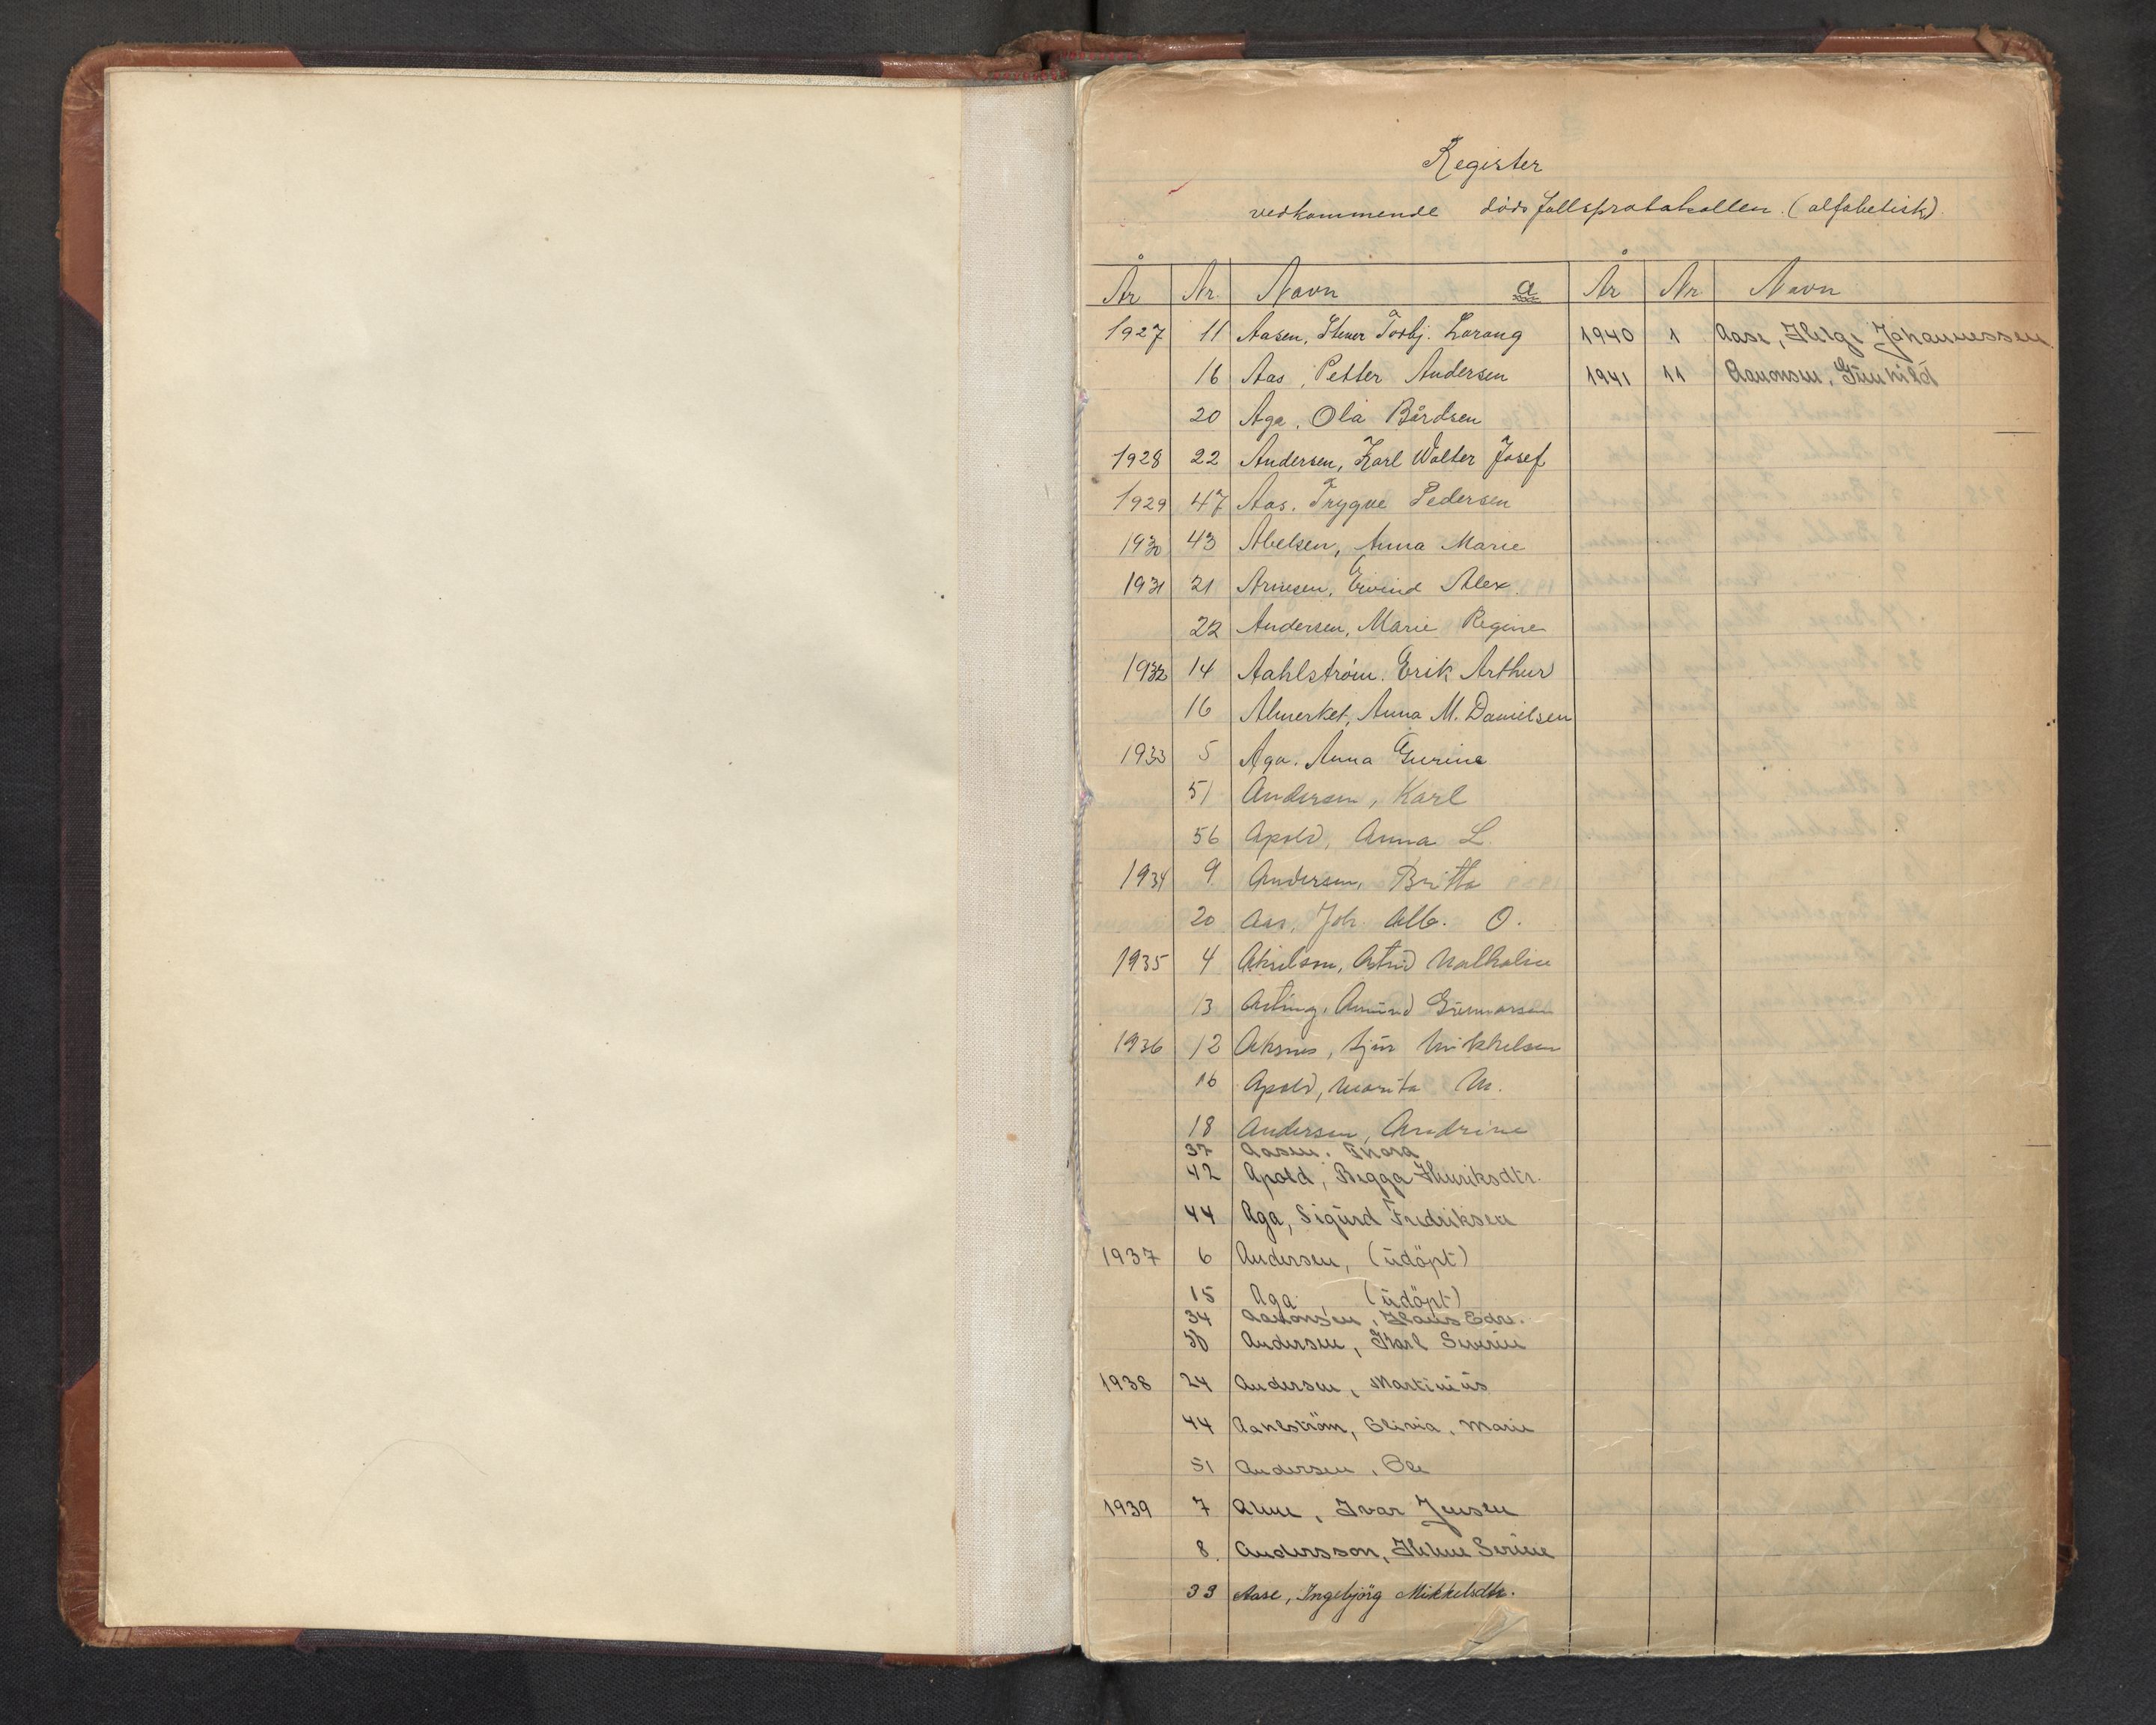 Register
vedkommende dødsfallsprotokollen. (alfabetisk).
År Nr. Navn a År Nr Navn
1927 11 Aasen, Torbj. 1940 1 Aase, Helge Johannessen
16 Aas, Petter Andersen 1941 11 Aanonsen, Gunhild
20 Aga, Ola Bårdsen
1928 22 Andersen, Karl Walter Josef
1929 47 Aas. Trygve Pedersen
1930 43 Abelsen, Anna Marie
1931 21 Arnesen, Eivind Alex.
22 Andersen, Marie Regine
1932 14 Aahlstrøm. Erik Arthur
16 Almerket, Anna M. Danielsen
1933 5 Aga. Anna Gurine
51 Andersen, Karl
56 Apold, Anna L.
1934 9 Andersen, Britha
20 Aas, Joh. Alb. O.
1935 4 Astrid
13 Amund Gunnarsen
1936 12 Aksnes, Sjur Mikkelsen
16 Apold, Marita M.
18 Andersen, Andrine
37 Aasen. Thora
42 Apold, Begga Henriksdtr.
44 Aga, Sigurd Fredriksen
1937 6 Andersen, (udöpt)
15 Aga (udöpt)
34 Aanonsen, Hans Edv.
Andersen, Karl Severin
1938 24 Andersen, Martinius
44 Aahlström, Olivia, Marie
51 Andersen, Ole
1939 7 Alme, Ivar Jensen
8. Andersson, Serine
33 Aase, Ingebjörg Mikkelsdtr.